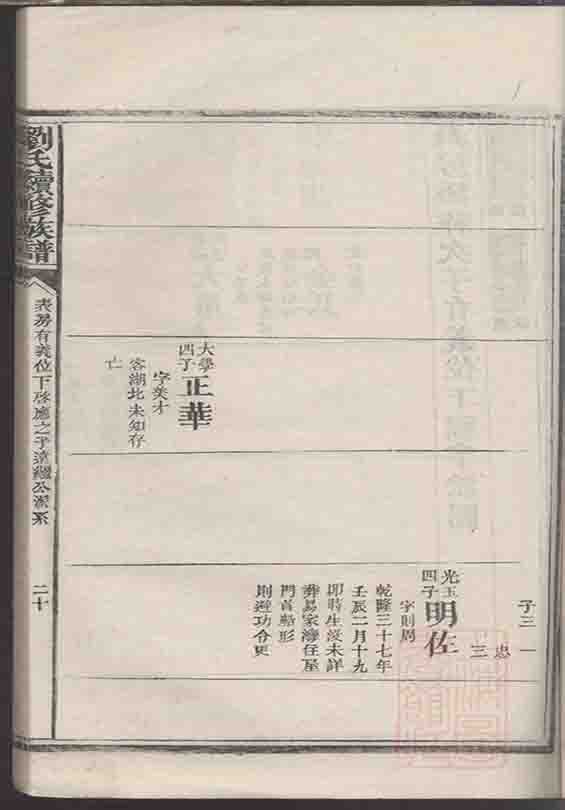 子三一
忠三
光玉四子
明佐
字則周
乾隆三十七年
壬辰二月十九
卯時生沒未詳
葬易家灣住屋
門首船形
則避功令更
大學四子
正華
字美才
客湖北未知存
亡
劉氏續修族譜
表房有義位下啓應之子
公派系
二十